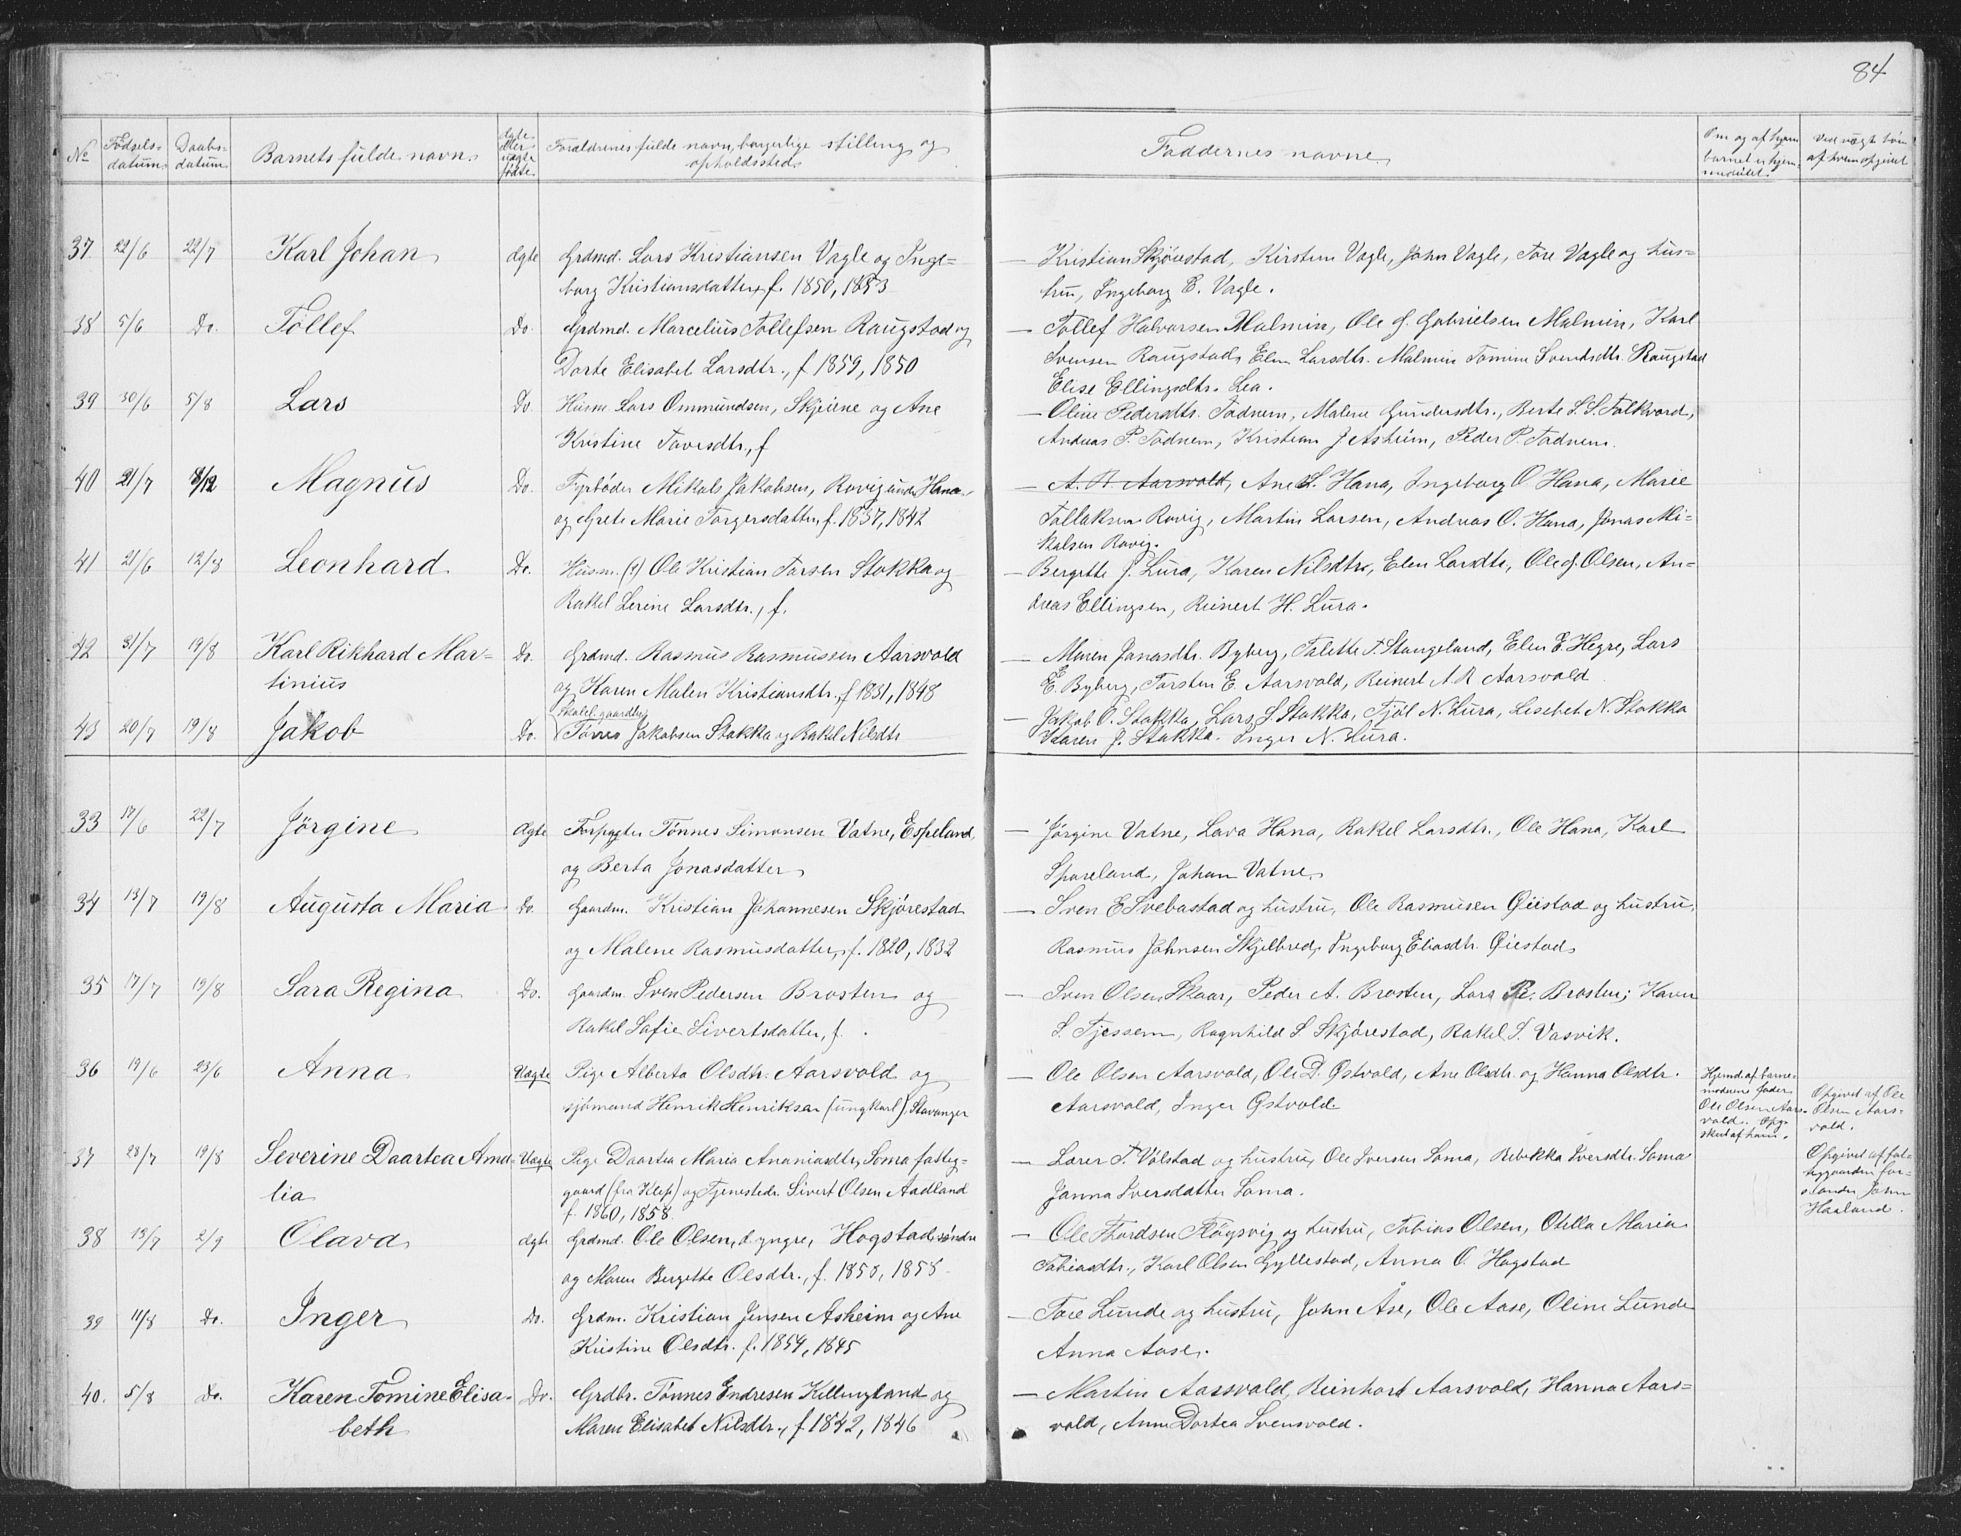 84
No Fødsels- datum. Daabs- datum Barnets fulde navn. Ægte eller uægte fødte. Forældrenes fulde navn, borgerlige stilling og opholdssted. Faddernes navne. Om og af hvem barnet er hjem- medøbt. Ved uægte børn af hvem opgivet
37 22/6 22/7 Karl Johan ægte Grdmd. Lars Kristiansen Vagle og Inge= — Kristian Skjørestad, Kirsten Vagle, John Vagle, Tore Vagle og hus=
borg Kristiansdatter, f. 1850, 1853 tru, Ingeborg E. Vagle.
38 5/6 Do. Tollef Do. Grdmd. Marcelius Tollefsen Raugstad og — Tollef Halvarsen Malmin, Ole G. Gabrielsen Malmin, Karl
Dorte Elisabet Larsdtr., f 1859, 1850 Svensen Raugstad, Elen Larsdtr. Malmin Tomine Svendsdtr. Raugstad
Elise Ellingsdtr. Lea.
39 30/6 5/8 Lars Do. Husm Lars Ommundsen, Skjeiene og Ane — Oline Pedersdtr. Todnem, Malene Gundersdtr., Berte S. S. Folkvord,
Kristine Taresdtr., f Andreas P. Todnem, Kristian J Asheim, Peder P. Todnem.
40 21/7 8/12 Magnus Do. Fyrbøder Mikals Jakobsen, Rovig under Hana — A. R. Aarsvold, Ane S. Hana, Ingeborg O Hana, Marie
og Grete Marie Torgersdatter, f. 1837, 1842 Tollaksen Rovig, Martin Larsen, Andreas O. Hana, Jonas Mi=
kalsen Rovig.
41 21/6 12/8 Leonhard Do. Husm. (?) Ole Kristian Torsen Stokka og — Bergitte J. Lura, Karen Nilsdtr, Elen Larsdtr, Ole G. Olsen, An=
Rakel Serine Larsdtr., f. dreas Ellingsen, Reinert H. Lura.
42 31/7 19/8 Karl Rikhard Mar= Do. Grdmd. Rasmus Rasmussen Aarsvold — Maren Jonasdtr. Byberg, Talette T. Stangeland, Elen E. Hegre, Lars
tinius og Karen Malen Kristiansdtr., f 1831, 1848 E. Byberg, Torsten E. Aarsvold, Reinert A. R Aarsvold
43 20/7 19/8 Jakob Do. Tønnes Jakobsen Stokka og Rakel Nilsdtr — Jakob O. Stokka, Lars S Stokka, Fjøl N. Lura, Lisebet N. Stokka
Karen J. Stokka. Inger N. Lura.
33 17/6 22/7 Jørgine ægte Forpagter Tønnes Simonsen Vatne, Espeland, — Jørgine Vatne, Lava Hana, Rakel Larsdtr., Ole Hana, Karl
og Berta Jonasdatter Espeland, Johan Vatne.
34 13/7 19/8 Augusta Maria Do. Gaardm. Kristian Johannesen Skjørestad — Sven E Svebastad og hustru, Ole Rasmusen Øiestad og hustru,
og Malene Rasmusdatter, f. 1820, 1832 Rasmus Johnsen Skjelbred, Ingeborg Eliasdtr. Øiestad.
35 17/7 19/8 Sara Regina Do. Gaardm. Sven Pedersen Brosten og — Sven Olsen Skaar, Peder A. Brosten, Lars Brosten; Karen
Rakel Sofie Sivertsdatter, f. S. Tjessem, Ragnhild S Skjørestad, Rakel T. Vasvik.
36 19/6 23/6 Anna Uægte Pige Alberta Olsdtr. Aarsvold og — Ole Olsen Aarsvold, Ole D. Østvold, Ane Olsdtr. og Hanna Olsdtr. Hjemd. af barne- moderens fader Ole Olsen Aars- vold. af ham. Opgivet af Ole Olsen Aars- vold.
sjømand Henrik Henriksen (ungkarl), Stavanger Aarsvold, Inger Østvold
37 28/7 19/8 Severine Daartea Ama- Uægte Pige Daartea Maria Ananiasdtr, Soma fatteg- — Lærer T. Vølstad og hustru, Ole Iversen Soma, Rebekka Iversdtr. Soma Opgivet af fat- tiggaarden for- stander John Haaland.
lia gaard (fra Klep) og Tjenestedr. Sivert Olsen Aadland Janna Iversdatter Soma.
f. 1860, 1858.
38 13/7 2/9 Olava ægte Grdmd. Ole Olsen, d. yngre, Hogstad søndre — Ole Thordsen Fløgsvig og hustru, Tobias Olsen, Otilla Maria
og Maren Bergitte Olsdtr., f. 1850, 1858 Tobiasdtr., Karl Olsen Gyllestad, Anna O. Hogstad
39 11/8 Do. Inger Do. Grdm. Kristian Jensen Asheim og Ane — Tore Lunde og hustru, John Åse, Ole Aase, Oline Lunde
Kristine Olsdtr. f. 1854, 1845 Anna Aase.
40. 5/8 Do. Karen Tomine Elisa- Do. Grdbr. Tønnes Endresen Killingland og — Martin Aarsvold, Reinhart Aarsvold, Hanna Aars=
beth Maren Elisabet Nilsdtr., f 1842, 1846 vold, Anne Dortea Svensvold.